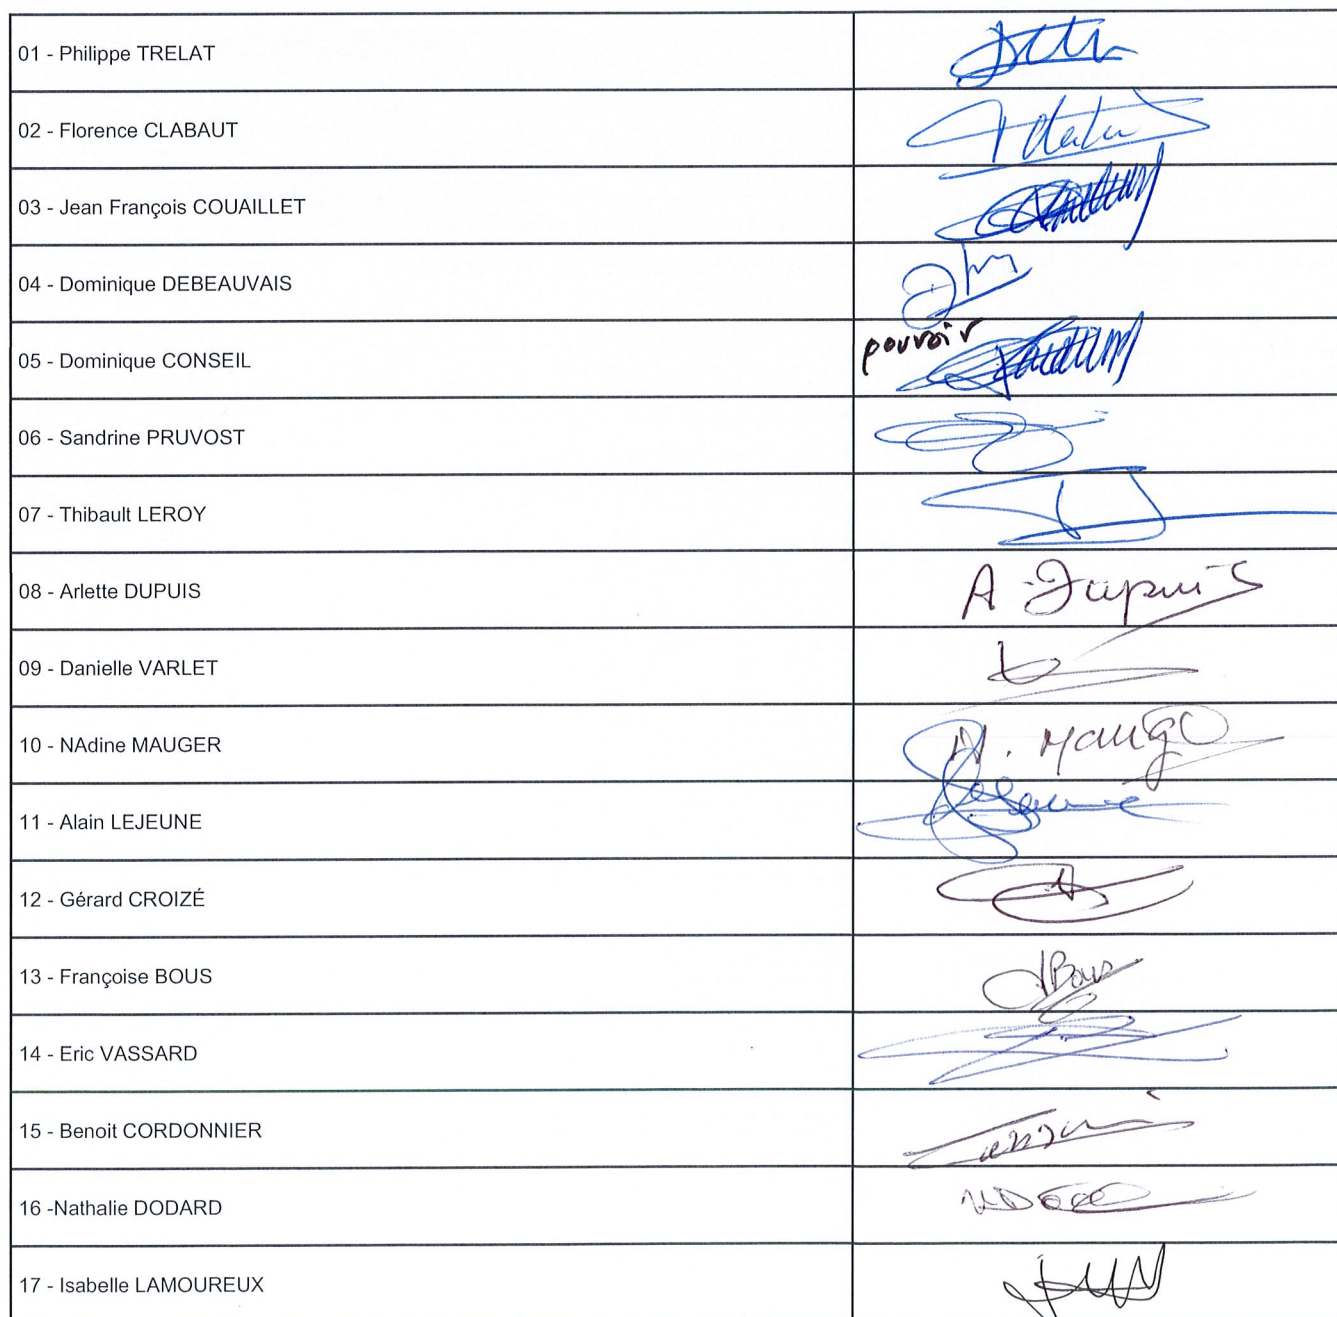 01 - Philippe TRELAT
02 - Florence CLABAUT
03 - Jean François COUAILLET
04 - Dominique DEBEAUVAIS
pouvoir
05 - Dominique CONSEIL
06 - Sandrine PRUVOST
07 - Thibault LEROY
08 - Arlette DUPUIS
A Dupuis
09 - Danielle VARLET
10 - NAdine MAUGER
11 - Alain LEJEUNE
12 - Gérard CROIZÉ
13 - Françoise BOUS
14 - Eric VASSARD
15 - Benoit CORDONNIER
16 -Nathalie DODARD
17 - Isabelle LAMOUREUX